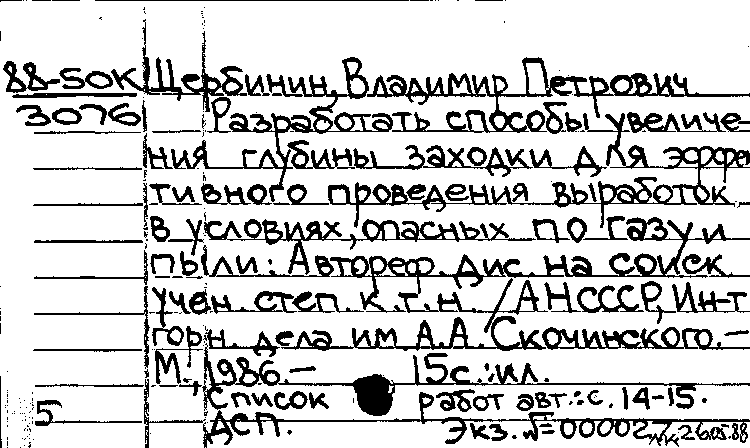 88-50К Щербинин, Владимир Петрович
3076 Разработать способы увеличе-
ния глубины заходки для эффек
тивного проведения выработок
в условиях, опасных по газу и
пыли: Автореф. дис. на соиск.
учен. степ. к.т.н. / АН СССР, Ин-т
горн. дела им. А.А. Скочинского.—
М., 1986.— 15с.:ил.
Список работ авт.: с. 14-15.
5 ДСП. Экз. №=000027 26.05.88